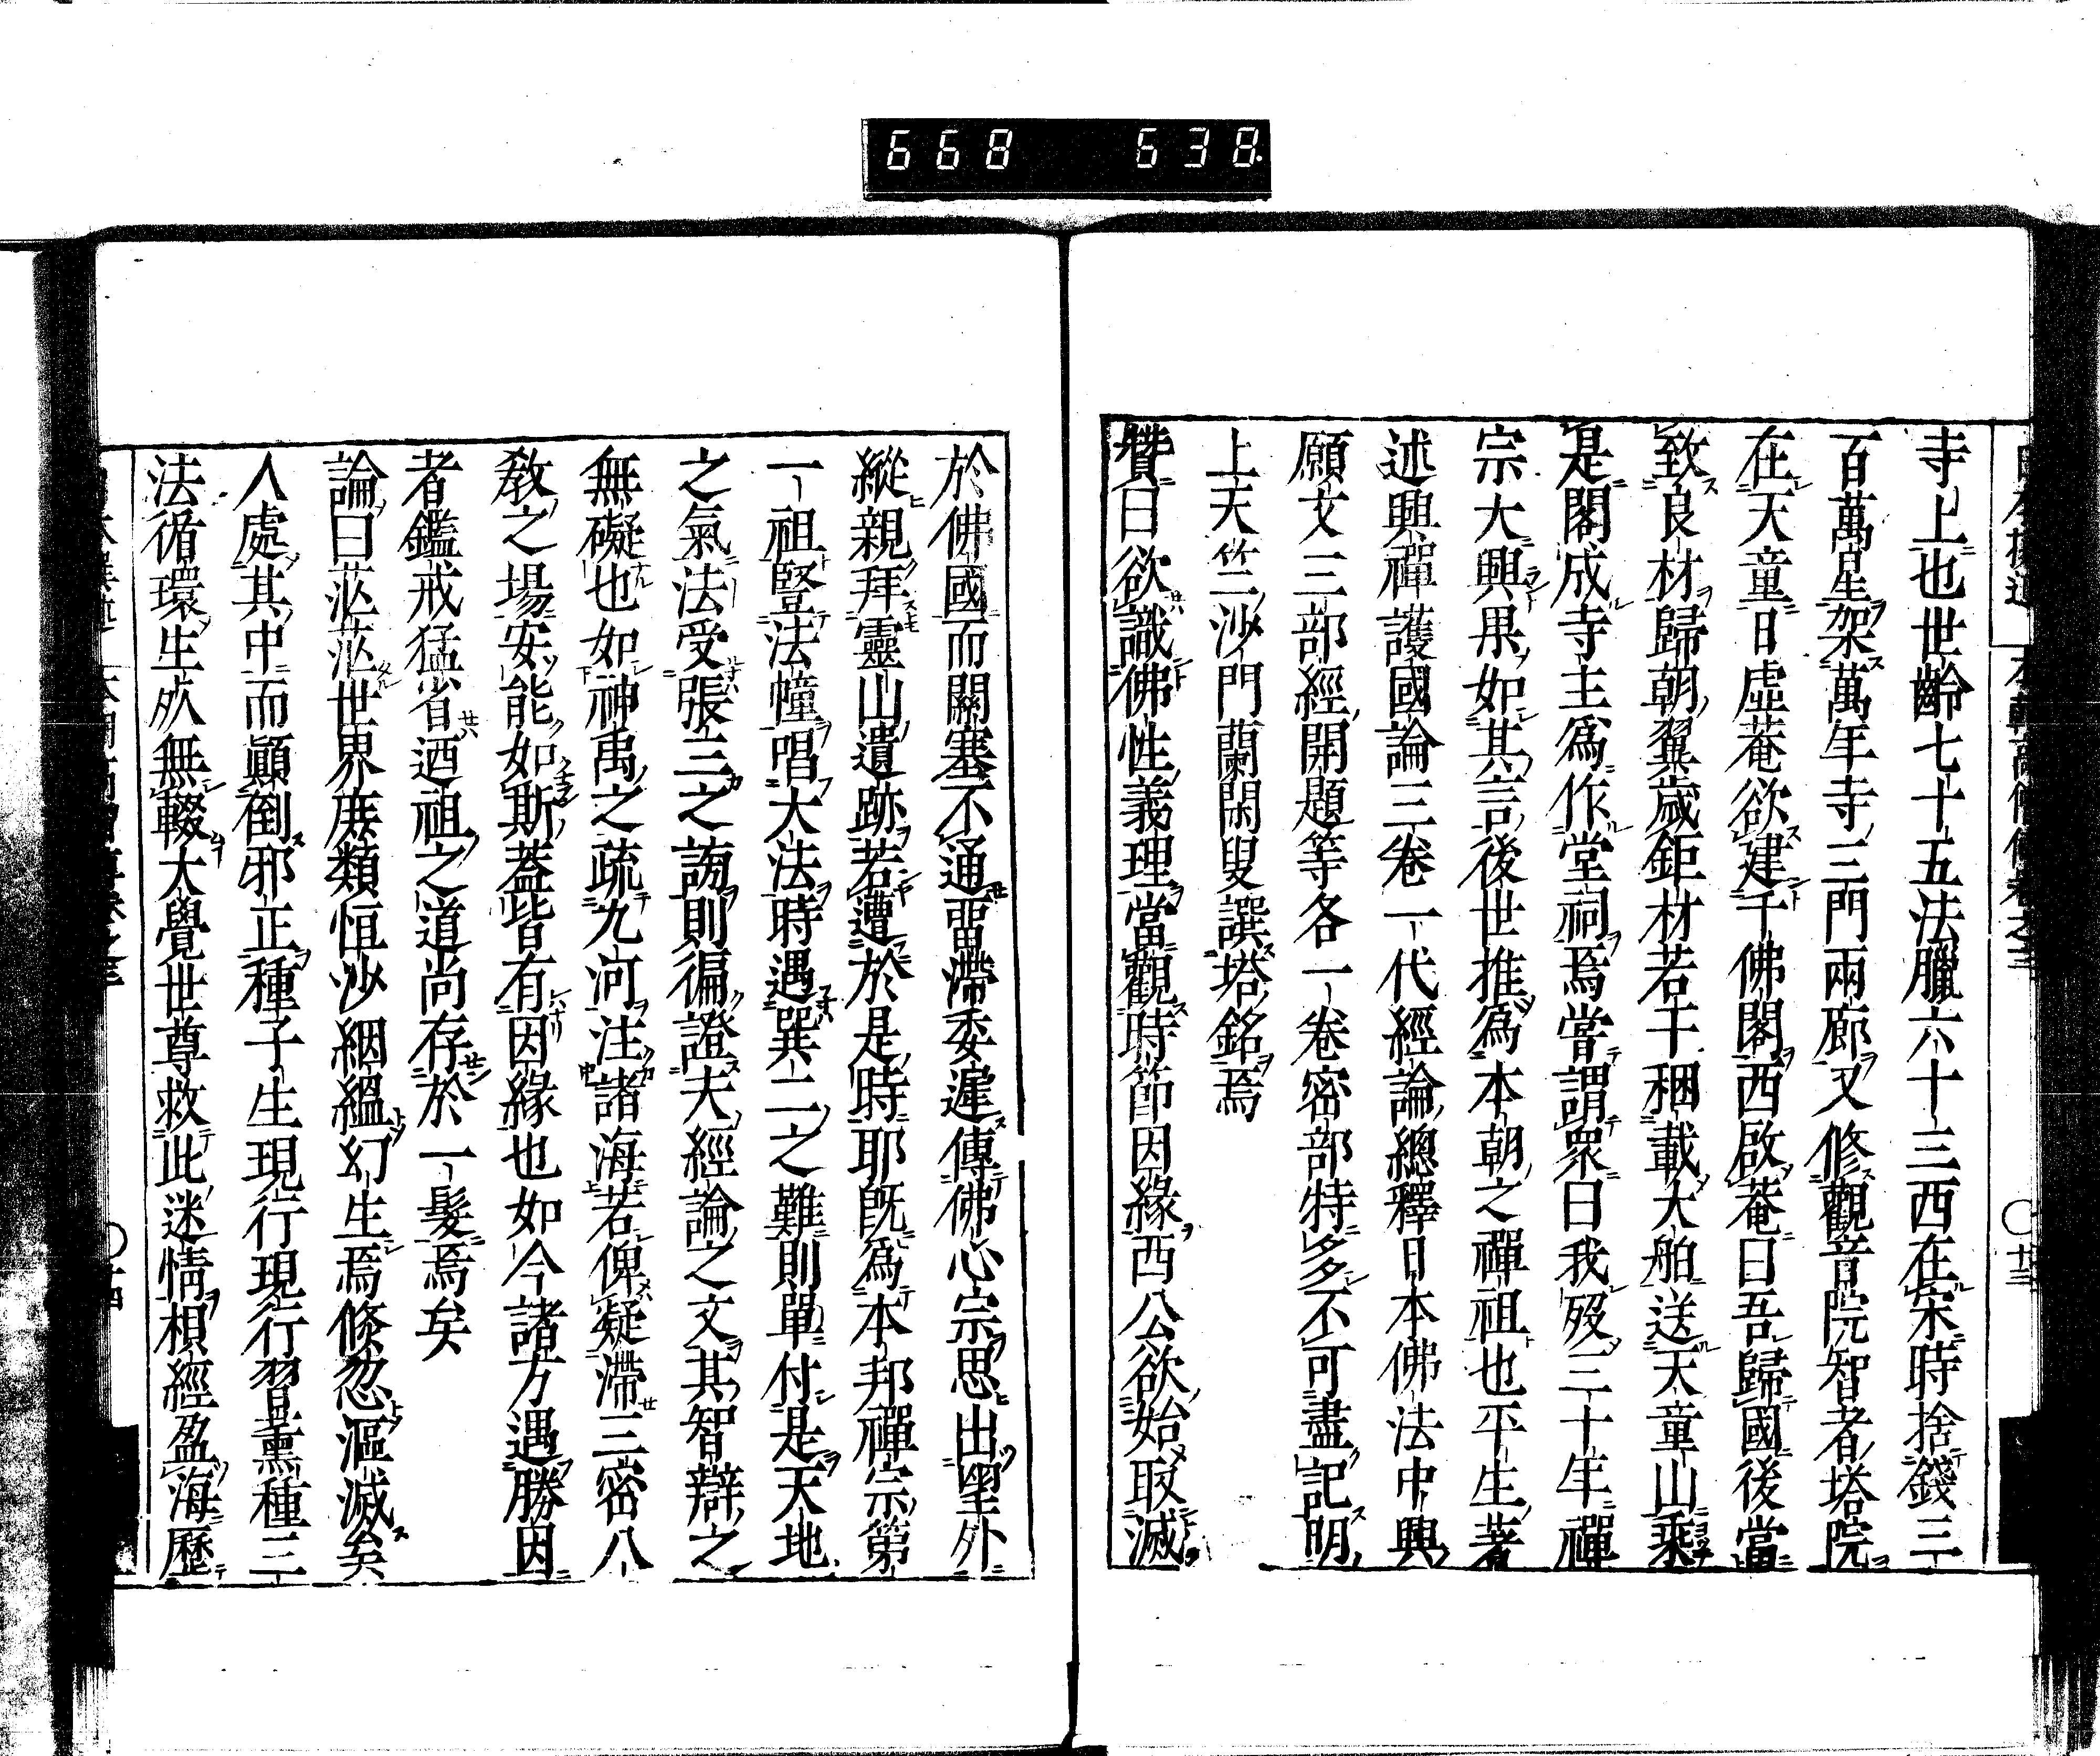 668 638.
寺上也世齡七十五法臘六十三西在宋時捨錢三
百萬星架萬年寺三門兩廊又修觀音院智者塔院
在天童日虛菴欲建千佛閣西啟菴曰吾歸國後當
致良材歸朝翼歲鉅材若干稇載大舶送天童山乘
是閣成寺主爲作堂祠焉嘗謂衆曰我歿三十年禪
宗大興果如其言後世推爲本朝之禪祖也平生著
述興禪護國論三卷一代經論總釋日本佛法中興
願文三部經開題等各一卷密部特多不可盡記明
上天竺沙門蘭閑叟譔塔銘焉
贊曰欲識佛性義理當觀時節因緣西公欲始取滅
於佛國而關塞不通畱滯委遲傳佛心宗思出望外
縱親拜靈山遺跡若遭於是時耶既爲本邦禪宗第
一祖豎法幢唱大法時遇巽二之難則單付是天地
之氣法受張三之謗則徧證夫經論之文其智辯之
無礙也如神禹之疏九河注諸海若俾凝滯三密八
教之場安能如斯蓋皆有因緣也如今諸方遇勝因
者鑑戒猛省迺祖之道尚存於一髮焉矣
論曰茫茫世界庶類恒沙絪縕幻生焉倏忽漚滅矣
人處其中而顚倒邪正種子生現行現行習薰種三
法循環生死無輟大覺世尊救此迷情根經盈海歷